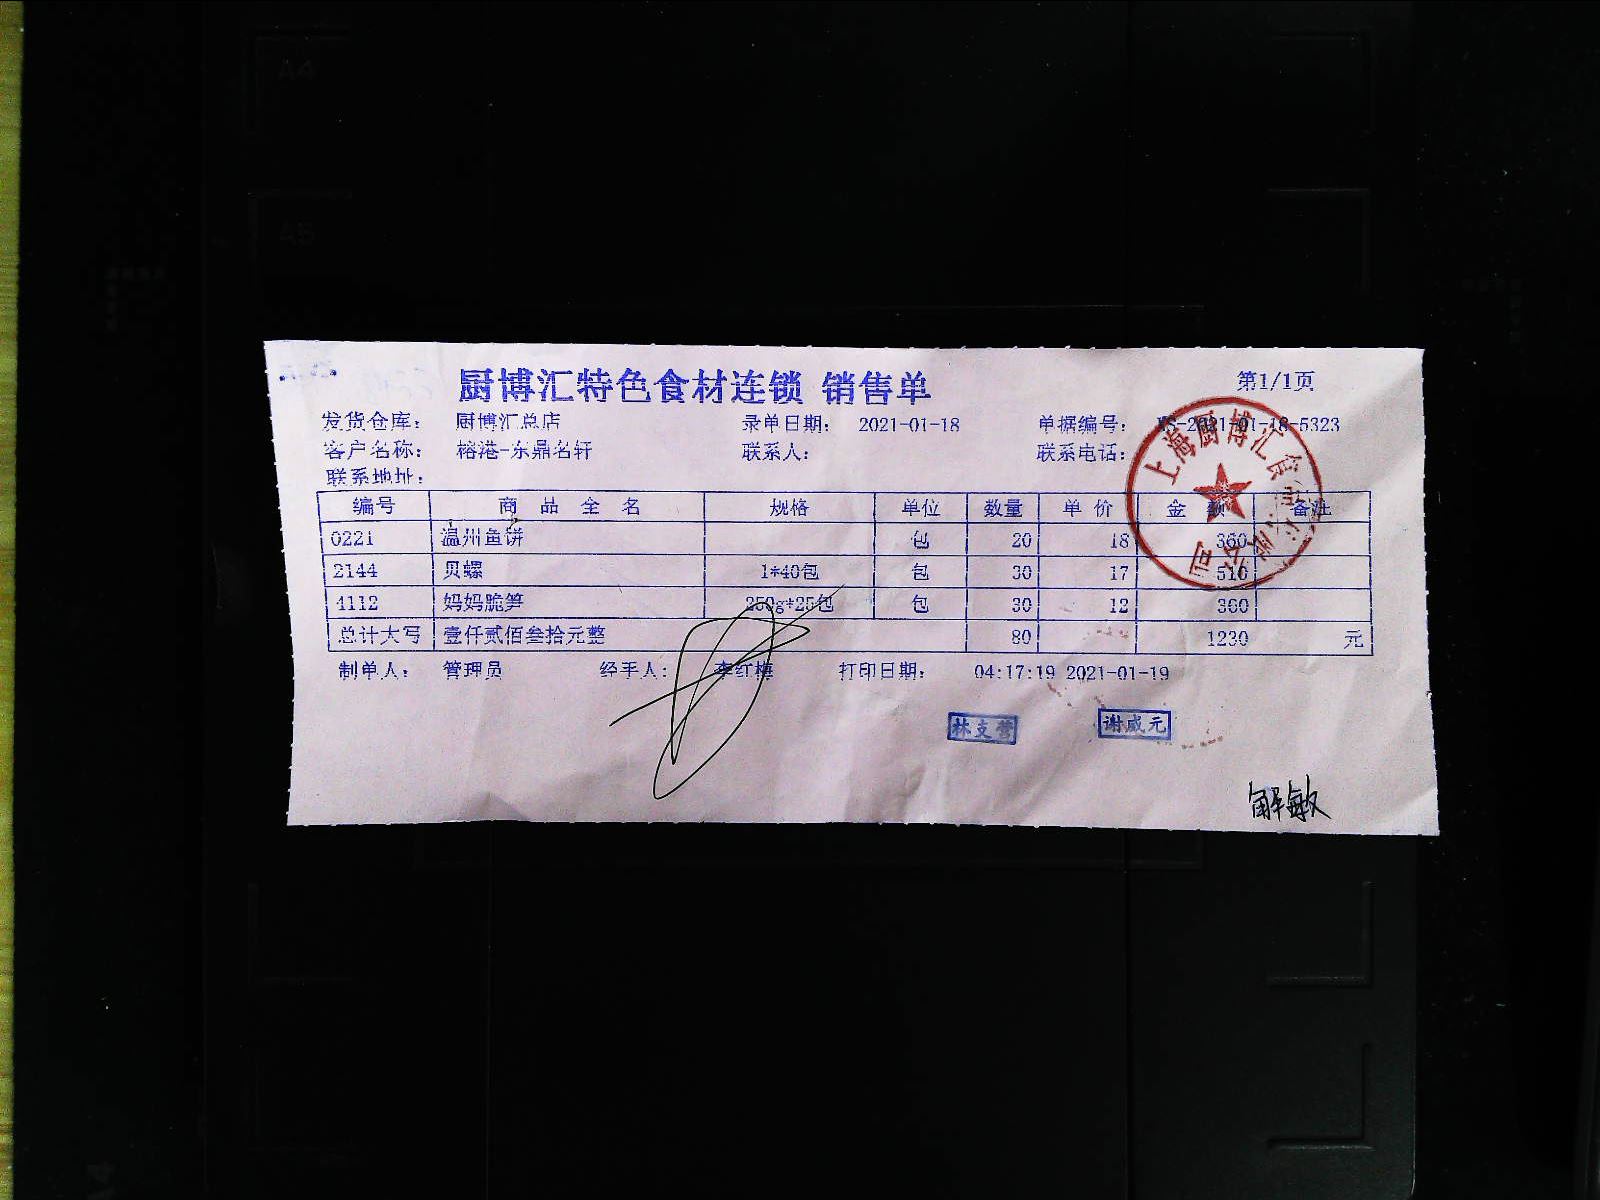 A4
A5
厨博汇特色食材连锁 销售单
第1/1页
发货仓库： 厨博汇总店 录单日期： 2021-01-18 单据编号： XS-2021-01-18-5323
客户名称： 榕港-东鼎名轩 联系人： 联系电话：
联系地址：
编号 商品全名 规格 单位 数量 单价 金额 备注
0221 温州鱼饼 包 20 18 360
2144 贝螺 1*40包 包 30 17 510
4112 妈妈脆笋 250g*25包 包 30 12 360
总计大写 壹仟贰佰叁拾元整 80 1230 元
制单人： 管理员 经手人： 李红梅 打印日期： 04:17:19 2021-01-19
上海厨博汇食 公司
林支营 谢咸元
解敏